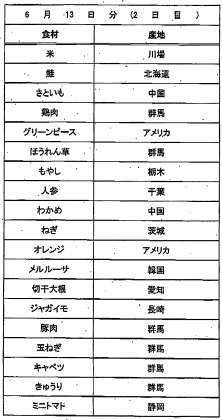 6月13日分(2日目)
食材 産地
米 川場
鮭 北海道
さといも 中国
鶏肉 群馬
グリーンピース アメリカ
ほうれん草 群馬
もやし 栃木
人参 千葉
わかめ 中国
ねぎ 茨城
オレンジ アメリカ
メルルーサ 韓国
切干大根 愛知
ジャガイモ 長崎
豚肉 群馬
玉ねぎ 群馬
キャベツ 群馬
きゅうり 群馬
ミニトマト 静岡